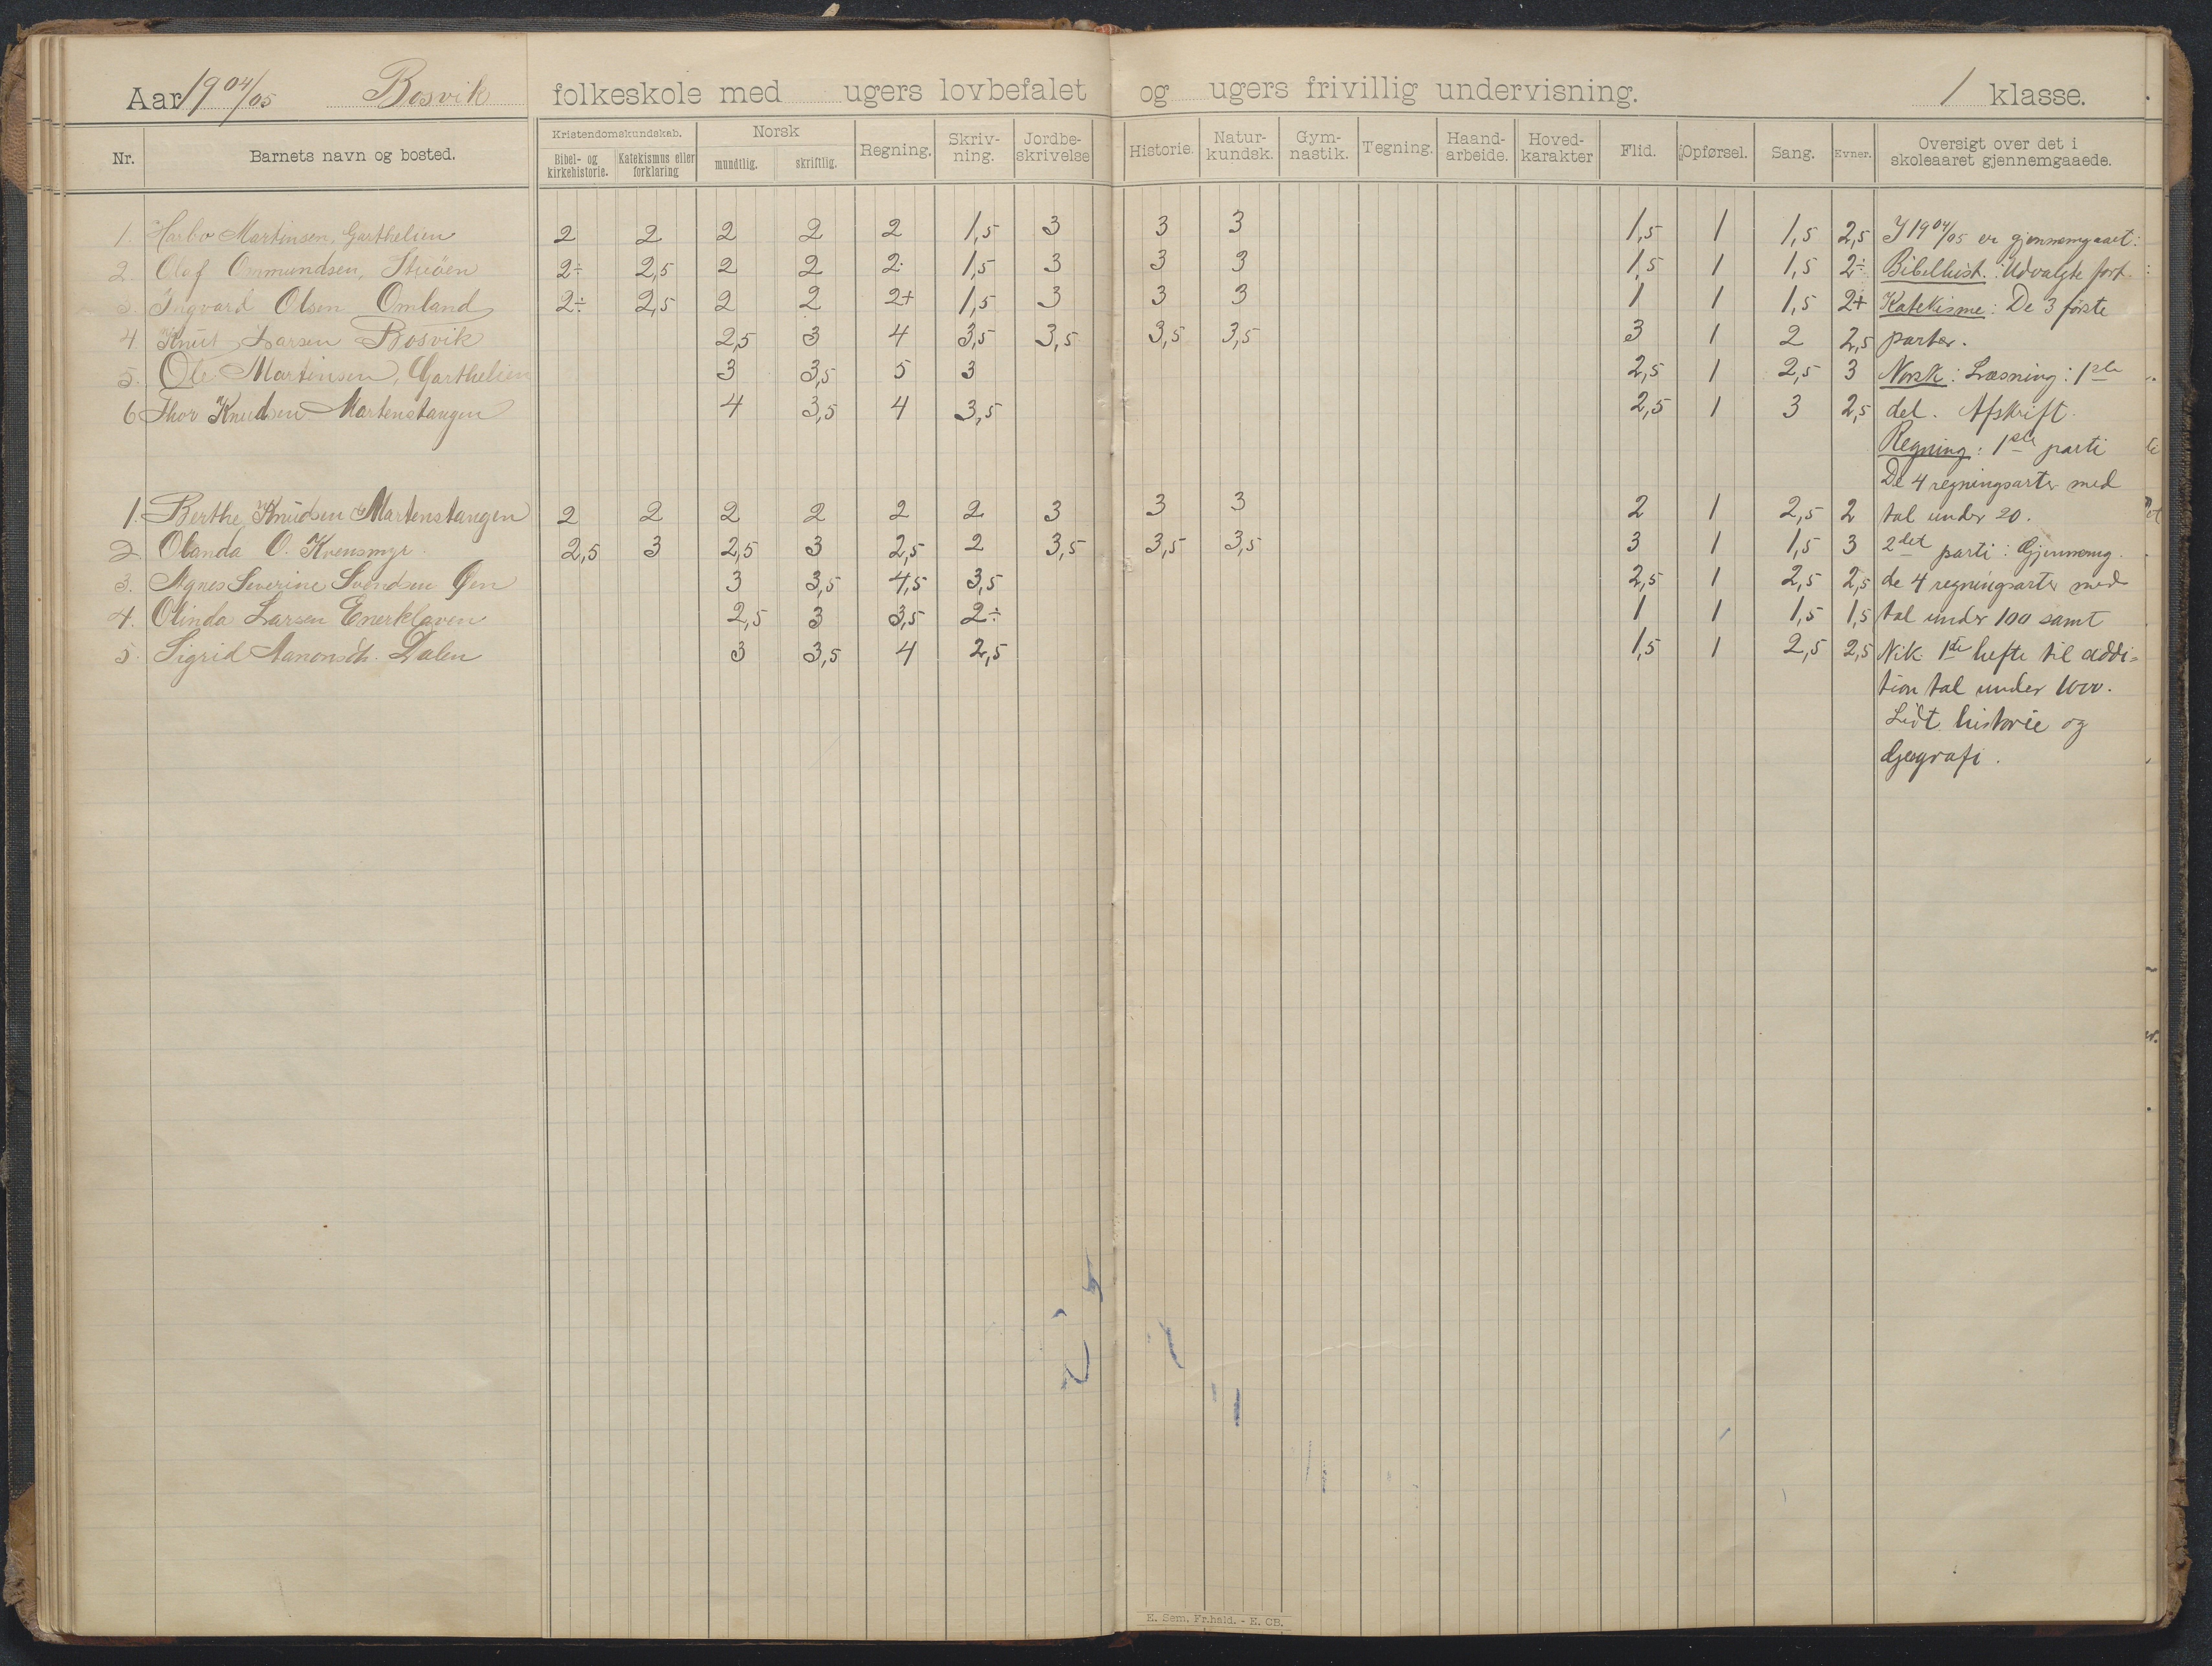 Aar 1904/05 Bosvik folkeskole med ugers lovbefalet og ugers frivillig undervisning. 1 klasse.
Nr. Barnets navn og bosted. Kristendomskundskab. Bibel- og kirkehistorie. Katekismus eller forklaring Norsk mundtlig. skriftlig. Regning. Skriv-ning. Jordbe-skrivelse Historie. Natur-kundsk. Gym-nastik. Tegning. Haand-arbeide. Hoved-karakter Flid. Opførsel. Sang. Evner. Oversigt over det i skoleaaret gjennemgaaede.
1. Harbo Martinsen, Garthelien 2 2 2 2 2 1,5 3 3 3 1,5 1 1,5 2,5 I 1904/05 er gjennemgaaet:
2. Olaf Ommundsen, 2÷ 2,5 2 2 2 1,5 3 3 3 1,5 1 1,5 2÷ Bibelhist.: Udvalgte fort.
3. Ingvard Olsen Omland 2÷ 2,5 2 2 2+ 1,5 3 3 3 1 1 1,5 2+ Katekisme: De 3 første
4. Knut Larsen Bosvik 2,5 3 4 3,5 3,5 3,5 3,5 3 1 2 2,5 parter.
5. Ole Martinsen, Garthelien 3 3,5 5 3 2,5 1 2,5 3 Norsk: Læsning: 1ste
6 Thor Knudsen Martenstangen 4 3,5 4 3,5 2,5 1 3 2,5 del. Afskrift.
Regning: 1ste parti
De 4 regningsarter med
1. Berthe Knudsen Martenstangen 2 2 2 2 2 2 3 3 3 2 1 2,5 2 tal under 20.
2 Olanda O. Kvensmyr. 2,5 3 2,5 3 2,5 2 3,5 3,5 3,5 3 1 1,5 3 2det parti: Gjennemg.
3. Agnes Severine Svendsen 3 3,5 4,5 3,5 2,5 1 2,5 2,5 de 4 regningsarter med
4. Olinda Larsen Enerklaven 2,5 3 3,5 2÷ 1 1 1,5 1,5 tal under 100 samt
5. Sigrid Aanonsdt. Dalen 3 3,5 4 2,5 1,5 1 2,5 2,5 Nik. 1ste hefte til addi-
tion tal under 1000.
Lidt historie og
Geografi.
E. Sem, Fr.hald. - E. CB.